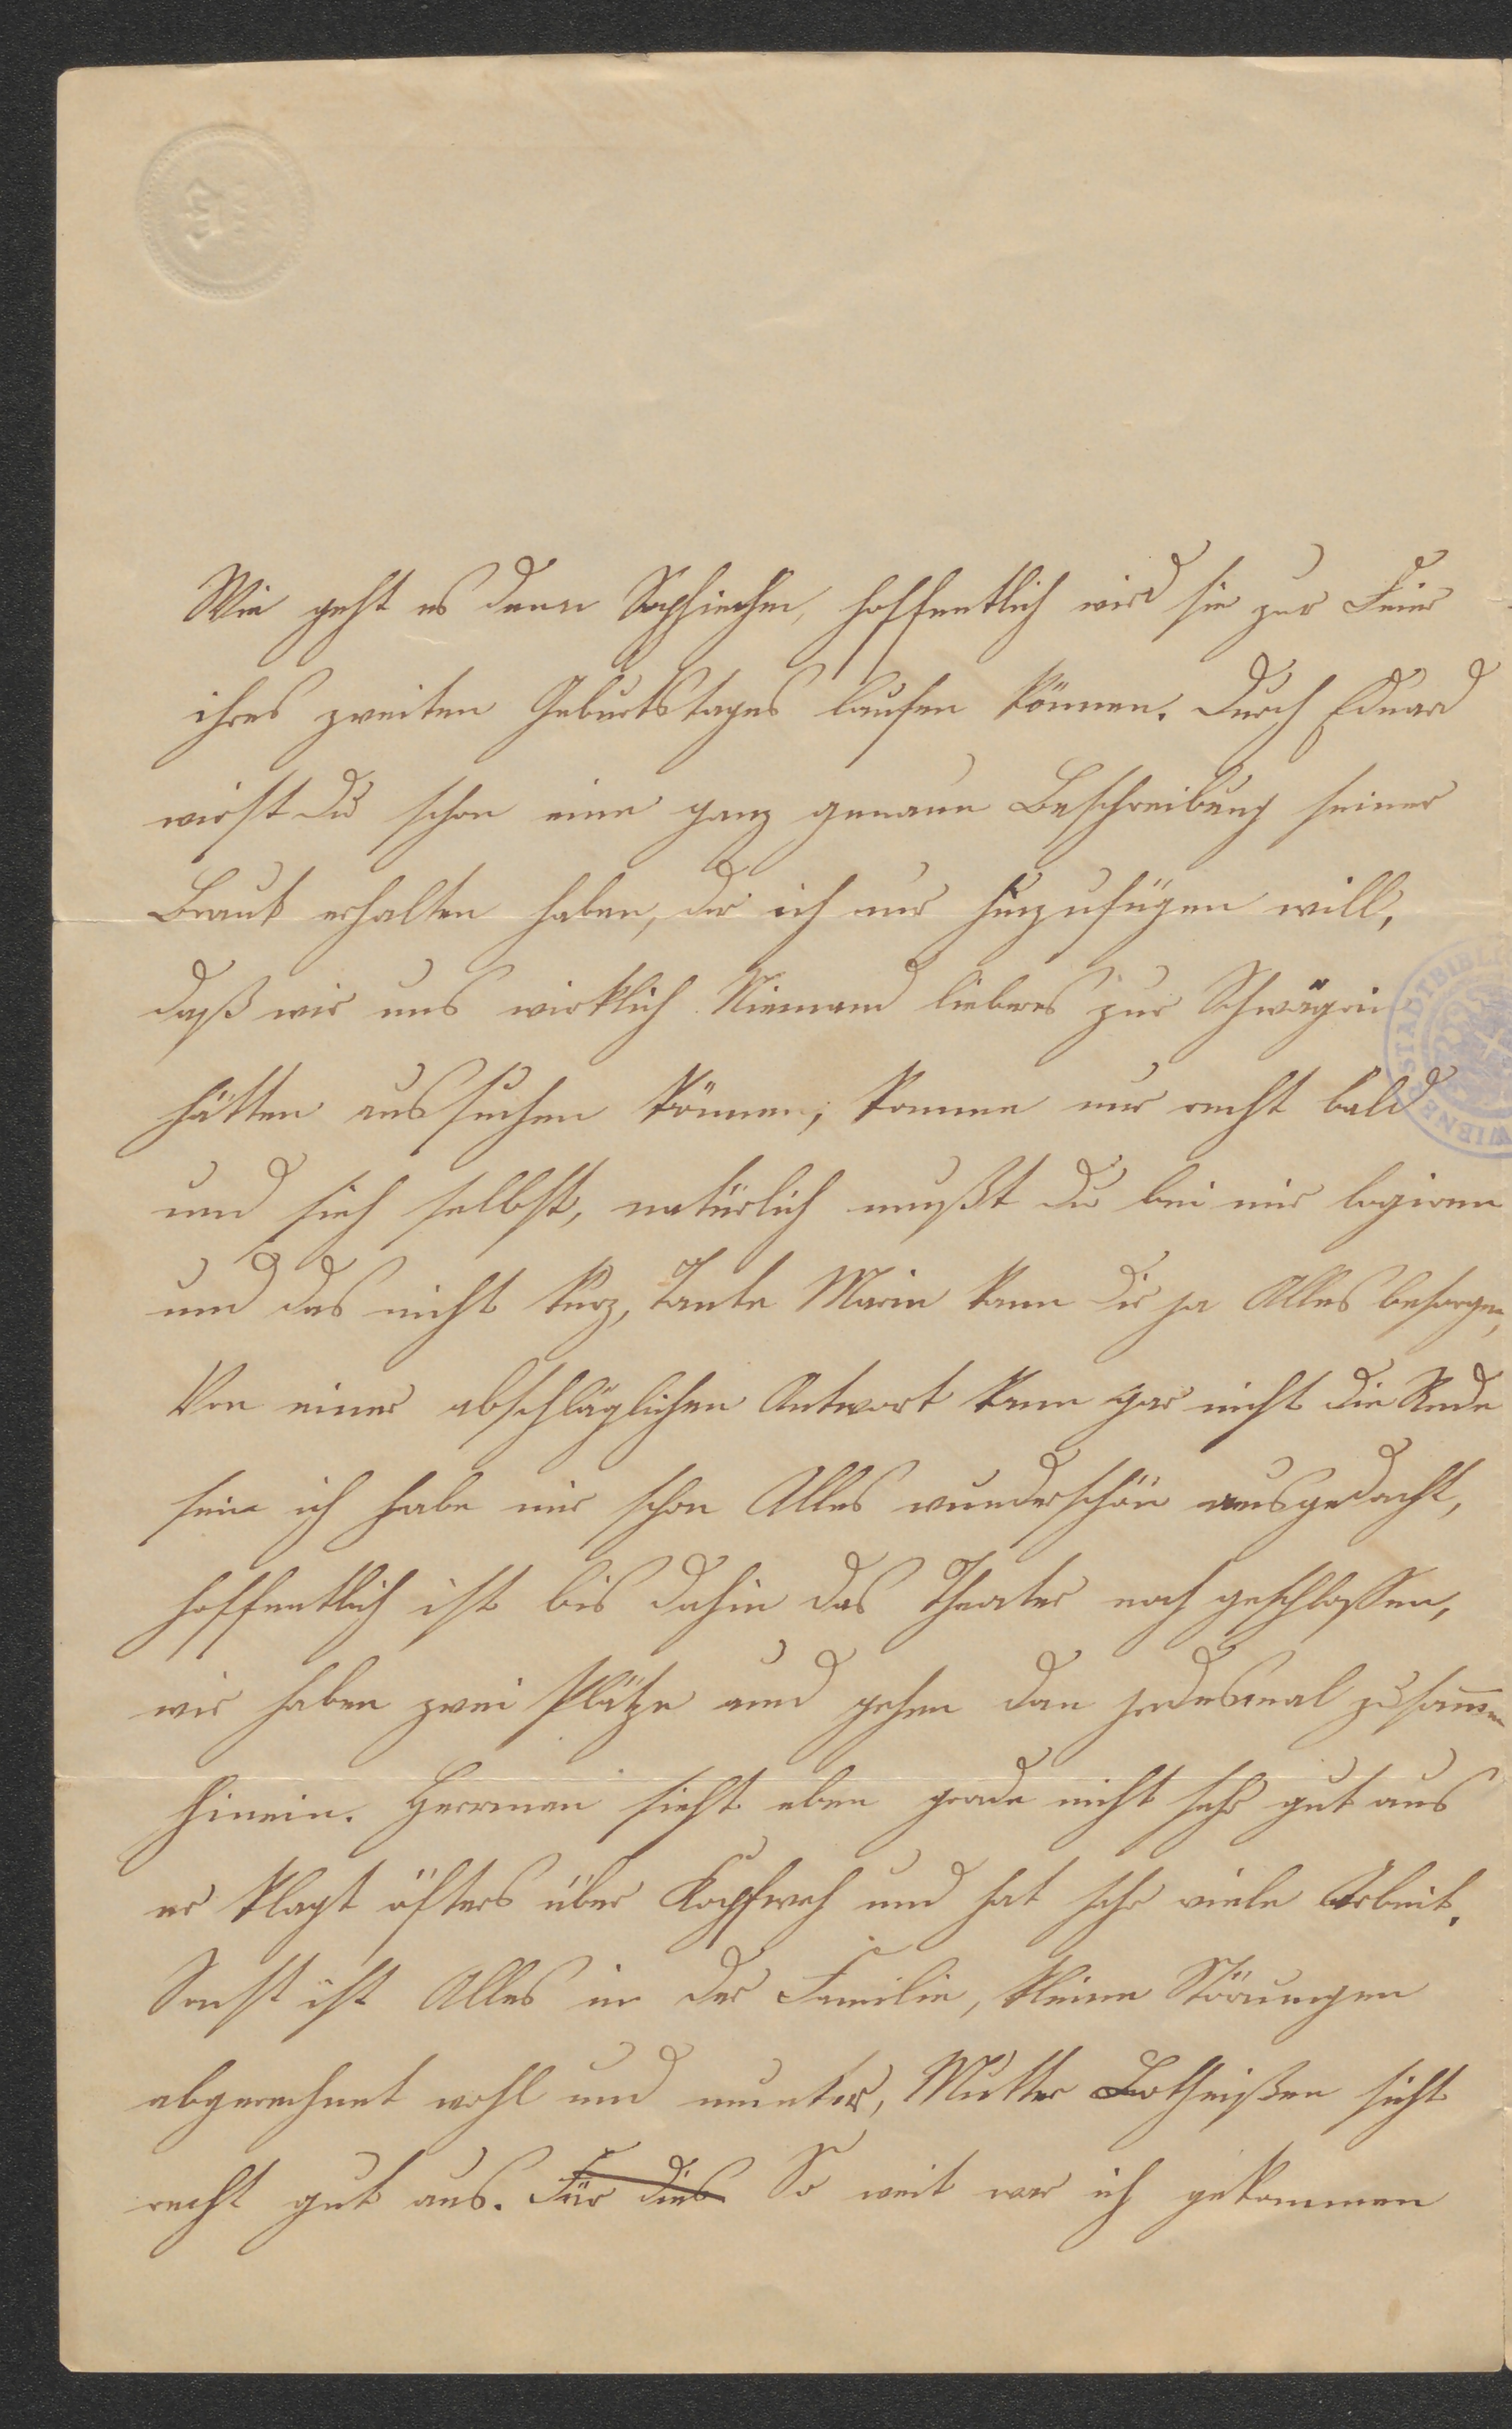 Wie geht es denn Sophiechen, hoffentlich wird sie zur Feier
ihres zweiten Geburtstages laufen können. Durch Eduard
wirst Du schon eine ganz genaue Beschreibung seiner
Braut erhalten haben, der ich nur hinzufügen will,
daß wir uns wirklich Niemand lieberes zur Schwägrin
hätten aussuchen können, komme nur recht bald
und sieh selbst, natürlich mußt Du bei mir logiren
und das nicht kurz, Tante Marie kann Dir ja Alles besorgen,
Von einer abschläglichen Antwort kann gar nicht die Rede
sein ich habe mir schon Alles wunderschön ausgedacht,
hoffentlich ist bis dahin das Theater noch geschlossen,
wir haben zwei Plätze und gehen dan jedesmal zusammen
hinein. Herrman sieht eben grade nicht sehr gut aus
er klagt öfters über Kopfweh und hat sehr viele Arbeit.
Sonst ist Alles in der Familie, kleine Störungen
abgerechnet wohl und munter, Mutter sieht
recht gut aus. Für dies So weit war ich gekommen
WIENER STADTBIBL